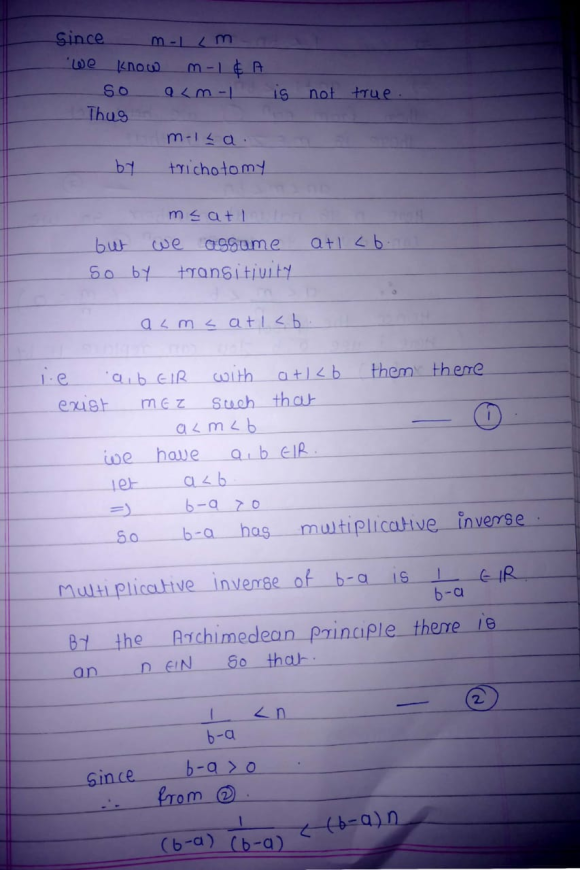 Since m-1 < m
we know m-1 ∉ A
so a < m-1 is not true.
Thus
m-1 ≤ a.
by trichotomy
m ≤ a+1
but we assume a+1 < b
So by transitivity
a < m ≤ a+1 < b.
i.e a, b ∈ IR with a+1 < b them there
exist m ∈ z such that
a < m < b — ①.
we have a, b ∈ IR.
let a < b
=) b-a > 0
so b-a has multiplicative inverse.
Multiplicative inverse of b-a is 1/(b-a) ∈ IR.
By the Archimedean principle there is
an n ∈ IN so that.
1/(b-a) < n — ②
Since b-a > 0.
∴ from ②.
(b-a) 1/(b-a) < (b-a)n